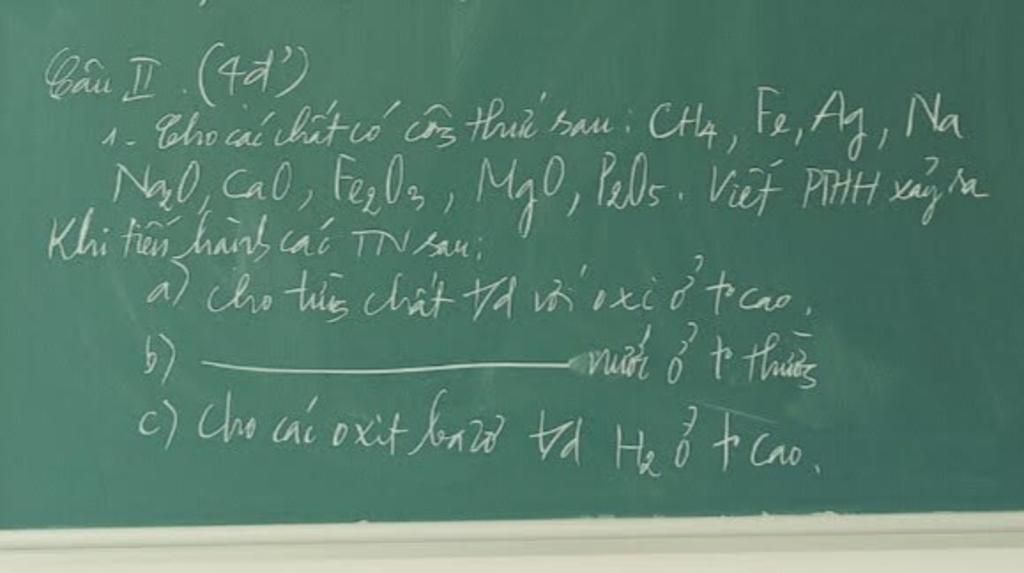 Câu II. (4đ')
1- Cho các chất có công thức sau: CH4, Fe, Ag, Na
Na2O, CaO, Fe2O3, MgO, P2O5. Viết PTHH xảy ra
Khi tiến hành các TN sau:
a) Cho từng chất t/d với oxi ở t° cao.
b) ——————— nước ở t° thường
c) Cho các oxit bazơ t/d H2 ở t° cao.